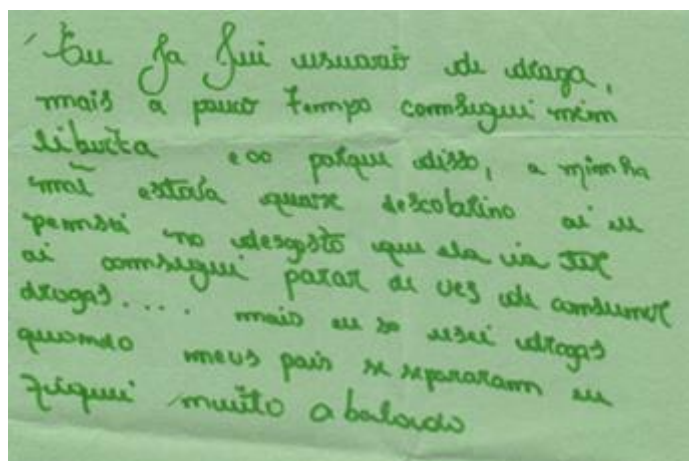 Eu Ja Fui usuario de droga,
mais a pouco tempo comsegui mim
liberta e oo porque disso, a minha
mãi estava quase descobrino ai eu
pemsei no desgosto que ela ia ter
ai comsegui parar di ves de consumir
drogas.... mais eu so usei drogas
quomdo meus pais se separaram eu
fiquei muito abalado